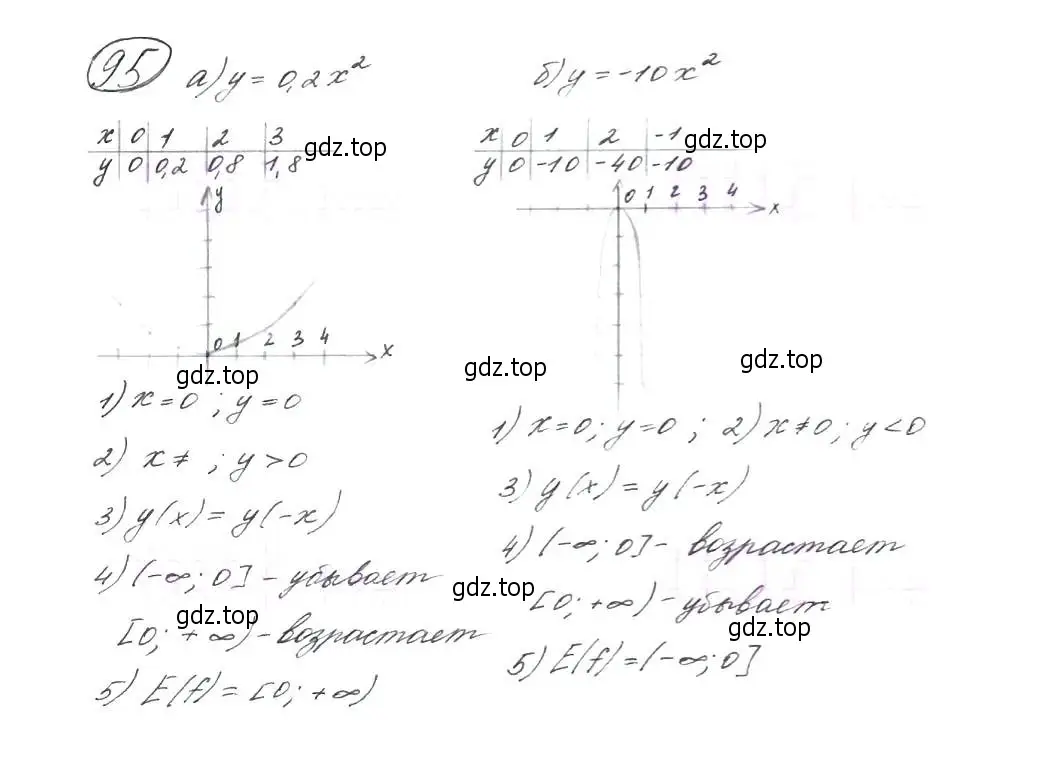 95
а) y = 0,2x²
x 0 1 2 3
y 0 0,2 0,8 1,8
gdz.top
y
0 1 2 3 4 x
gdz.top
1) x = 0 ; y = 0
2) x ≠ ; y > 0
3) y(x) = y(-x)
4) (-∞; 0] - убывает
gdz.top
[0; +∞) - возрастает
5) E(f) = [0; +∞)
б) y = -10x²
x 0 1 2 -1
y 0 -10 -40 -10
gdz.top
0 1 2 3 4 x
gdz.top
gdz.top
1) x = 0; y = 0 ; 2) x ≠ 0; y < 0
3) y(x) = y(-x)
4) (-∞; 0] - возрастает
gdz.top
[0; +∞) - убывает
gdz.top
5) E(f) = (-∞; 0]